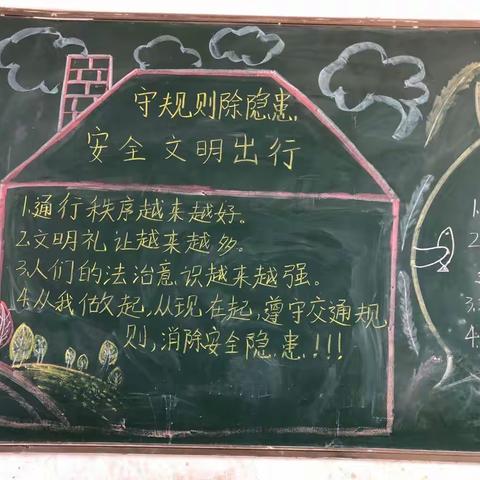 守规则除隐患
安全文明出行
1.通行秩序越来越好。
2.文明礼让越来越多。
3.人们的法治意识越来越强。
4.从我做起,从现在起,遵守交通规
则,消除安全隐患!!!
1.
2
3.
4.